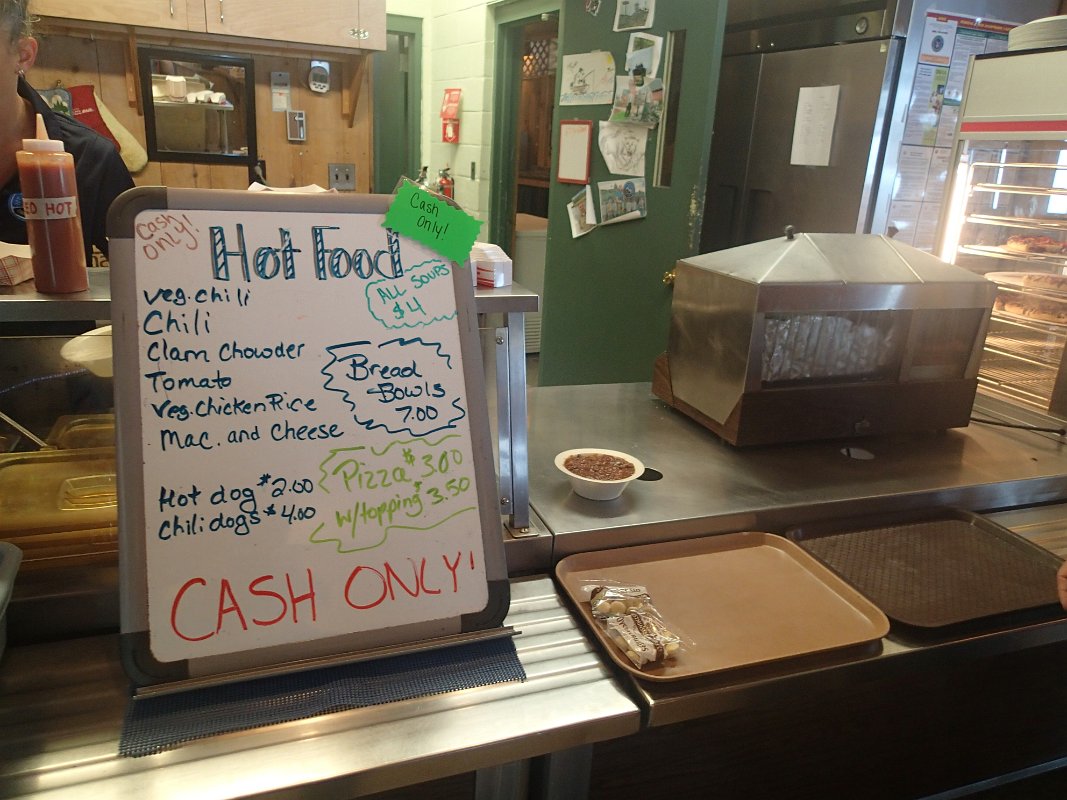 Cash
Only!
Cash
Only!
Hot Food
ALL SOUPS
$4
Veg. Chili
Chili
Clam Chowder
Tomato
Veg. Chicken Rice
Mac. and Cheese
Bread
Bowls
7.00
Pizza $3.00
w/topping $3.50
Hot dog $2.00
Chili dogs $4.00
CASH ONLY!
ED HOT